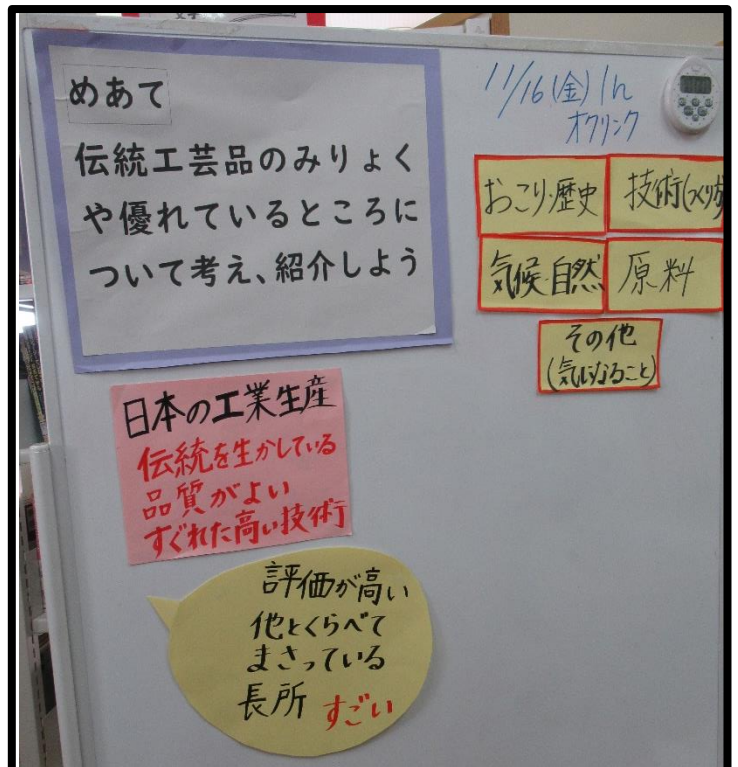 めあて
伝統工芸品のみりょく
や優れているところに
ついて考え、紹介しよう
11/16(金)1h
オクリンク
おこり・歴史
技術(つくり方
気候・自然
原料
その他
(気になること)
日本の工業生産
伝統を生かしている
品質がよい
すぐれた高い技術
評価が高い
他とくらべて
まさっている
長所 すごい